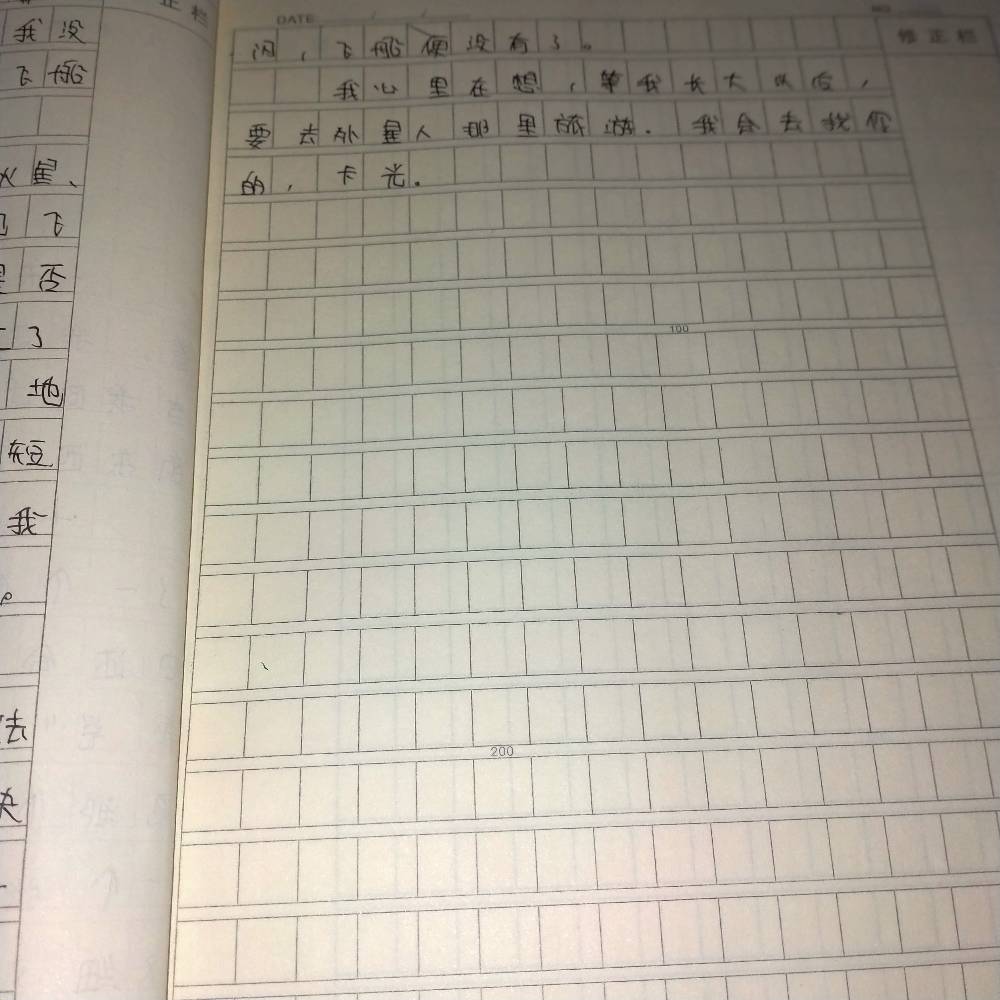 我没
飞船
火星、
飞
否
了
地
短
我
。
去
正栏
DATE
修正栏
闪，飞船便没有了。
我心里在想，等我长大以后，
要去外星人那里旅游。我会去找你
的，卡光。
100
200